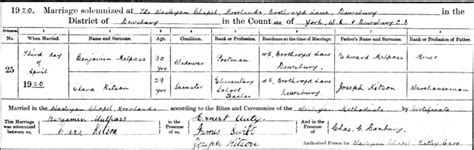 1920. Marriage solemnized at The Wesleyan Chapel, Moorlands, Boothroyd Lane, Dewsbury in the
District of Dewsbury in the Count of York, W.R. & Dewsbury C.B
No. When Married. Name and Surname. Age. Condition. Rank or Profession. Residence at the time of Marriage. Father's Name and Surname. Rank or Profession of Father.
25 Third day of April 1920 Benjamin Malpass 30 yrs Widower Postman Boothroyd Lane Dewsbury Edward Malpass Miner
Clara Kitson 29 yrs Spinster Elementary School Teacher 45, Boothroyd Lane Dewsbury Joseph Kitson Warehouseman
Married in the Wesleyan Chapel Moorlands according to the Rites and Ceremonies of the Wesleyan Methodists by Certificate
This marriage was solemnized between us
Benjamin Malpass
Clara Kitson
in the Presence of us
Ernest Auty
James Swift
Joseph Kitson
in the Presence of
Chas. G. Danbury
Authorised Person for Wesleyan Chapel Batley Carr